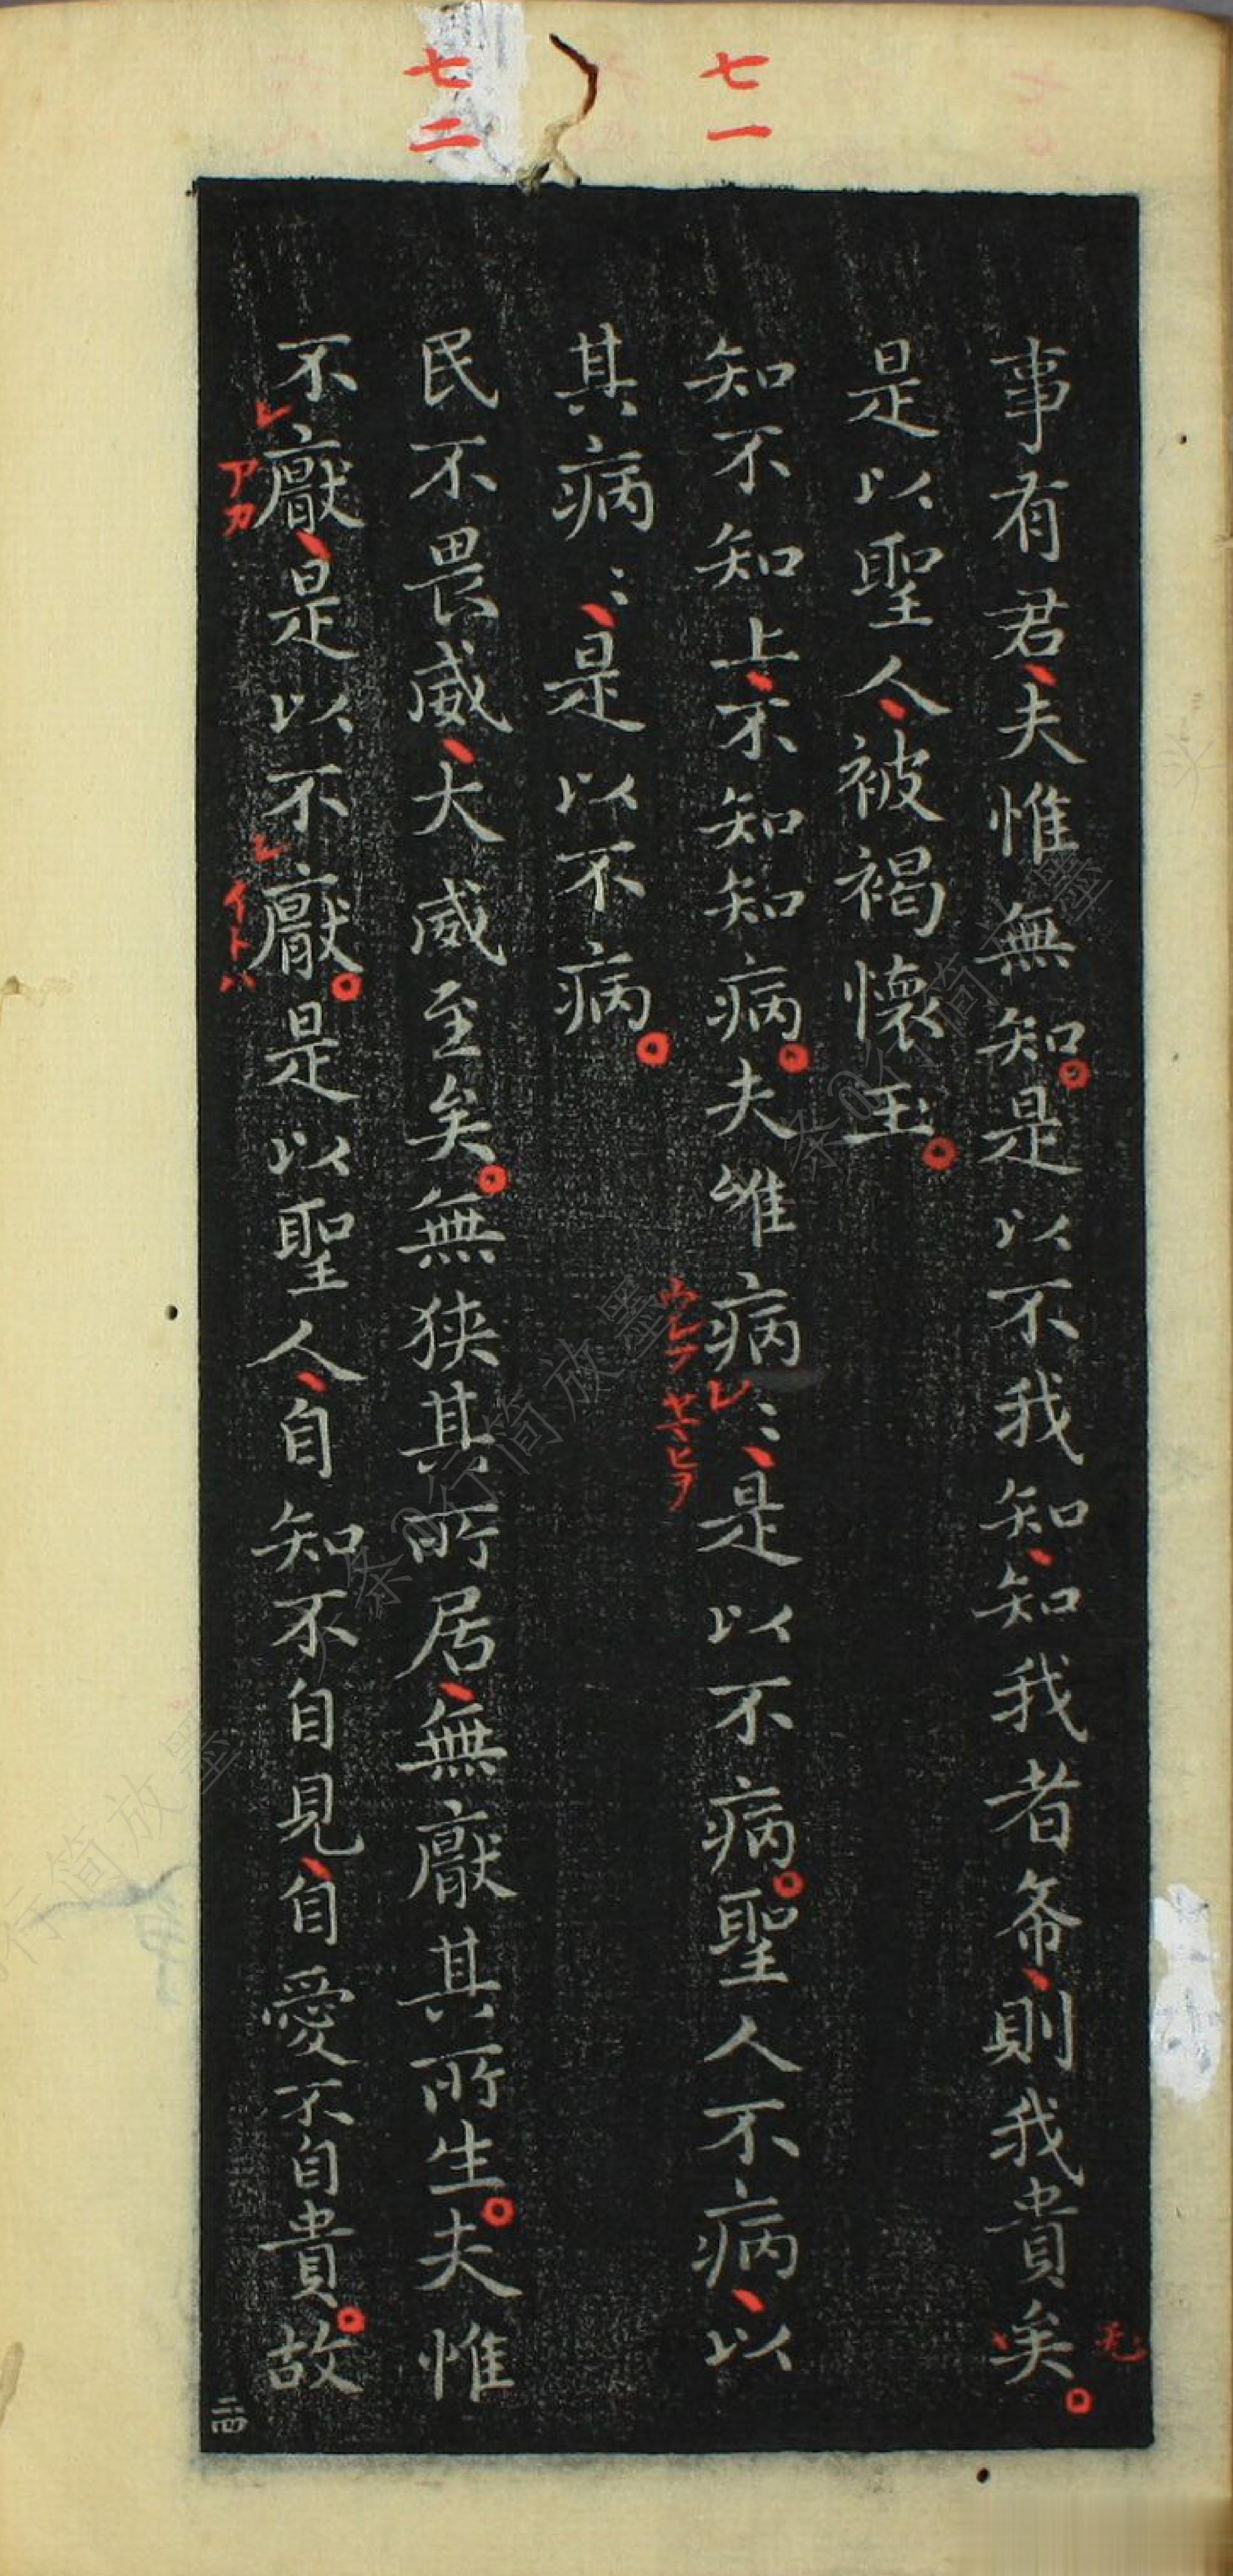 七一
七二
事有君夫惟無知是以不我知知我者希則我貴矣
是以聖人被褐懷玉
知不知上不知知病夫唯病〻是以不病聖人不病以
ウレフ
ヤマヒヲ
其病〻是以不病
民不畏威大威至矣無狭其所居無厭其所生夫惟
不厭是以不厭是以聖人自知不自見自愛不自貴故
レ
アカ
レ
イトハ
二四